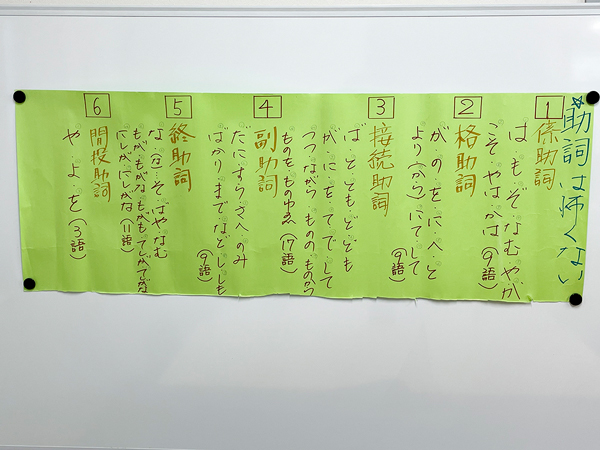 ☆助詞は怖くない!!
1
係助詞
は・も・ぞ・なむ・や・か
こそ・やは・かは(9語)
2
格助詞
が・の・を・に・へ・と
より・(から)・にて・して(9語)
3
接続助詞
ば・と・とも・ど・ども
が・に・を・て・で・して
つつ・ながら・ものの・ものから
ものを・ものゆゑ(17語)
4
副助詞
だに・すら・さへ・のみ
ばかり・まで・など・し・しも(9語)
5
終助詞
な・そ・ばや・なむ
もが・もがな・もがも・てしが・てしがな
にしが・にしがな(11語)
6
間投助詞
や・よ・を(3語)